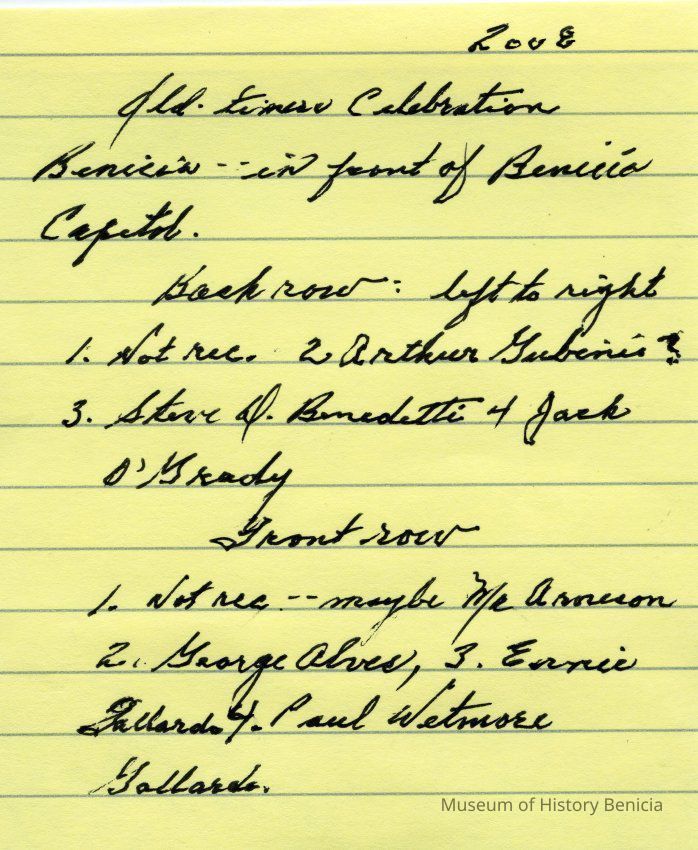 2008
Old-timers Celebration
Benicia -- in front of Benicia
Capitol.
Back row : left to right
1. Not rec. 2 Arthur Gubinis ?
3. Steve D. Benedetti 4 Jack
O'Grady
Front row
1. Not rec -- maybe Mr Arneson
2. George Alves, 3. Ernie
Gallardo 4. Paul Wetmore
Gallardo.
Museum of History Benicia